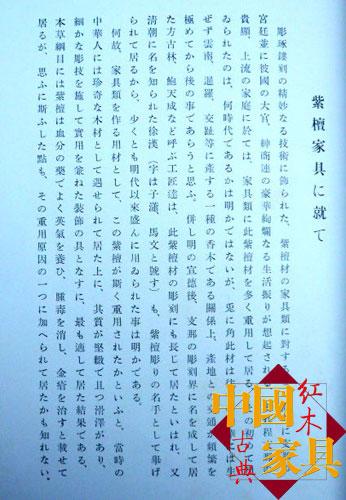 紫檀家具に就て
彫琢鏤刻の精妙なる技術に飾られた、紫檀材の家具類に對する
宮廷並に彼國の大官、紳商連の豪華絢爛なる生活振りが想起される
貴顯、上流の家庭に於ては、家具類に此紫檀材を多く重用して居る
ゐられたのは、何時代であるかは明かではないが、兎に角此材は
ぜず雲南、暹羅、交趾等に產する一種の香木である關係上、產地との交通が頻繁を
極めてから後の事であらうと思ふ、併し明の宣德後、支那の彫刻界に名を成して居
た方古林、鮑天成など呼ぶ工匠達は、此紫檀材の彫刻にも長じて居たといはれ、又
清朝に名を知られた徐漢(字は子滿、馬文と號す)も、紫檀彫りの名手として擧げ
られて居るから、少くとも明代以來盛んに用ゐられた事は明かである。
何故、家具類を作る用材として、この紫檀が斯く重用されたかといふと、當時の
中華人には珍奇な木材として遇せられて居た上に、其質が堅緻で且つ滑澤があり、
細かな彫技を施して實用を兼ねた裝飾の具となすに、最も適して居た結果である。
本草綱目には紫檀は血分の藥でよく英氣を養ひ、腫毒を消し、金瘡を治すと載せて
居るが、思ふに斯ふした點も、その重用原因の一つに加へられて居たかも知れない。
中國
紅木
古典
家具